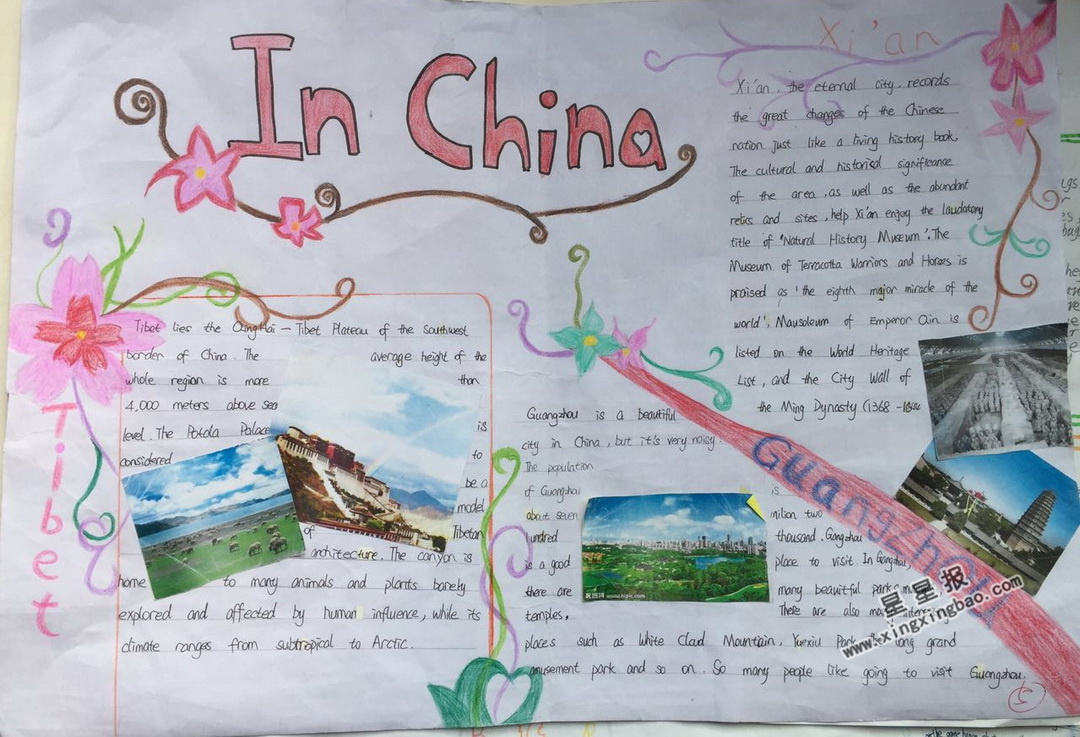 In China
Xi'an
Xi'an, the eternal city, records
the great changes of the Chinese
nation just like a living history book.
The cultural and historical significance
of the area, as well as the abundant
relics and sites, help Xi'an enjoy the laudatory
title of 'Natural History Museum'. The
Museum of Terracotta Warriors and Horses is
praised as 'the eighth major miracle of the
world'. Mausoleum of Emperor Qin is
listed on the World Heritage
List, and the City Wall of
the Ming Dynasty (1368 -
Tibet
Tibet lies the QingHai - Tibet Plateau of the southwest
border of China. The average height of the
whole region is more than
4,000 meters above sea
level. The Potola Palace is
considered to
be a
model
of Tibetan
architecture. The canyon is
home to many animals and plants barely
explored and affected by human influence, while its
climate ranges from subtropical to Arctic.
Guangzhou
Guangzhou is a beautiful
city in China, but it's very noisy.
The population
of Guangzhou is
about seven milion two
hundred thousand. Gangzhou
is a good place to visit. In Gangzhou,
there are many beautiful parks,
temples, There are also
places such as White Cloud Mountain, Yuexiu Park, long grand
amusement park and so on. So many people like going to visit Guangzhou.
星星报
www.xingxingbao.com
昵图网 www.nipic.com
5